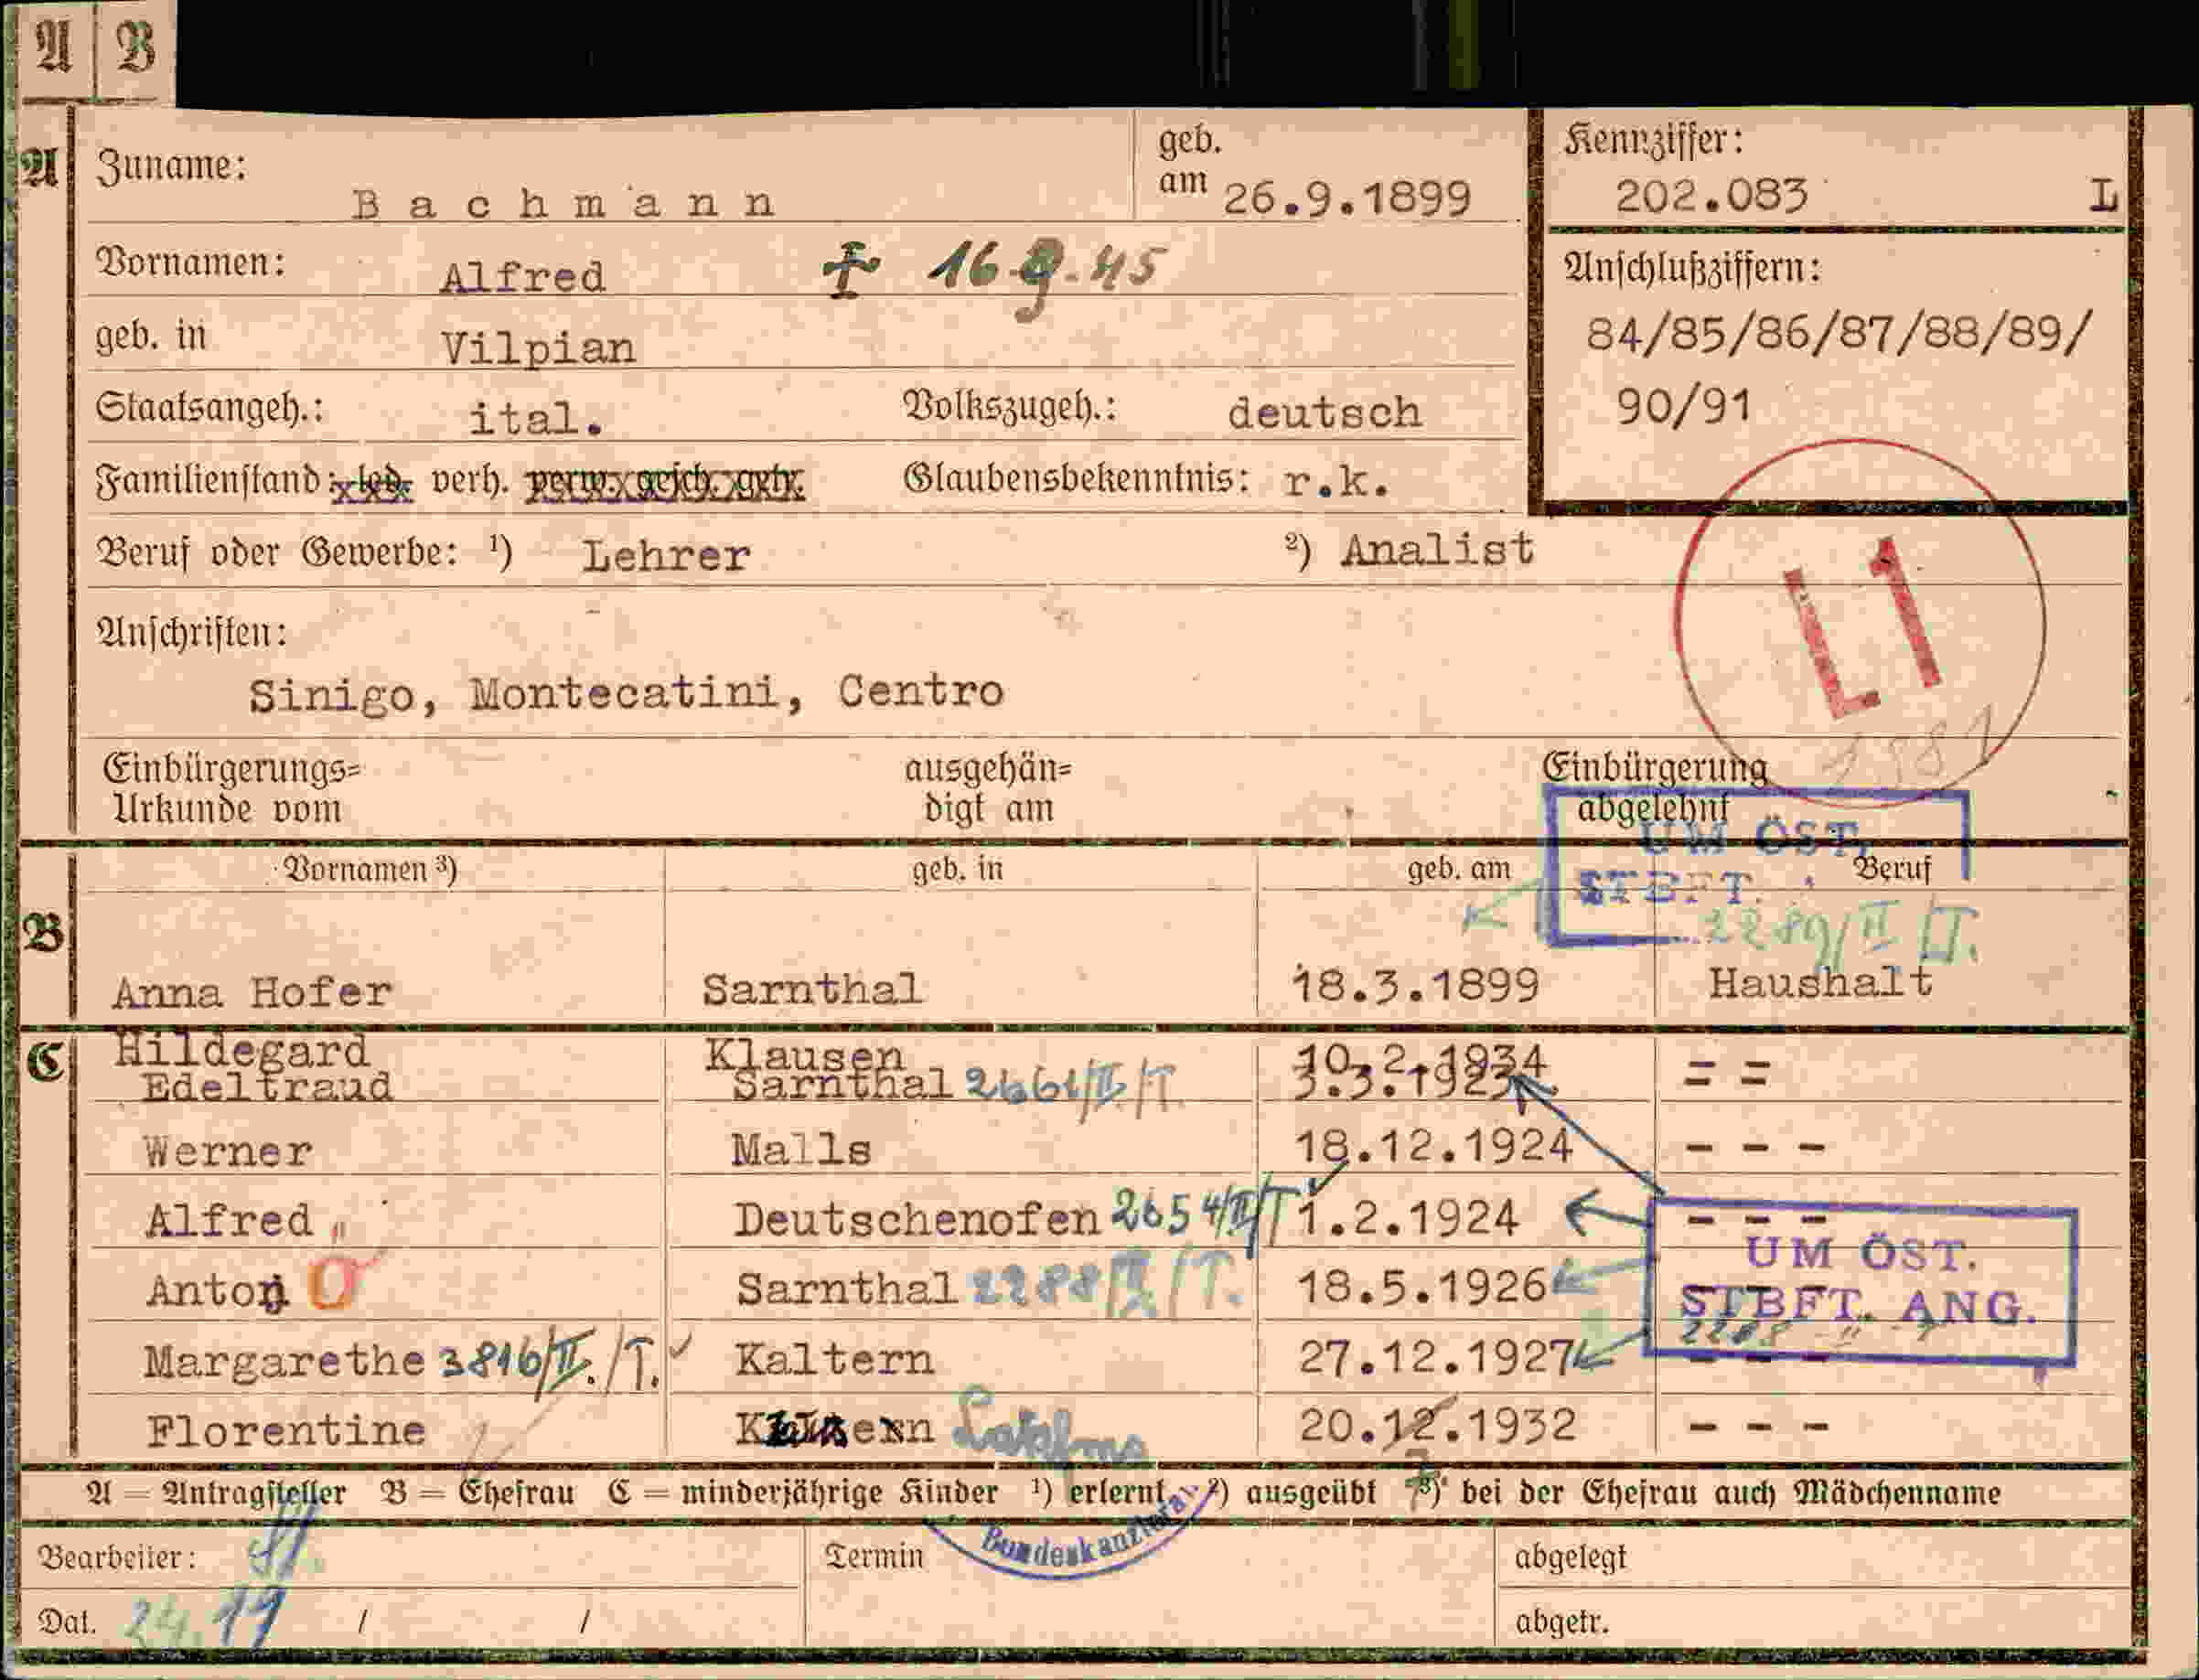 A B
A Zuname: Bachmann geb. am 26.9.1899 Kennziffer: 202.083 L
Vornamen: Alfred † 16.9.45 Anschlußziffern:
84/85/86/87/88/89/
90/91
geb. in Vilpian
Staatsangeh.: ital. Volkszugeh.: deutsch
Familienstand: led. verh. verw. gesch. getr. Glaubensbekenntnis: r.k.
Beruf oder Gewerbe: ¹) Lehrer ²) Analist
L1
Anschriften:
Sinigo, Montecatini, Centro
Einbürgerungs=
Urkunde vom
ausgehän=
digt am
Einbürgerung
abgelehnt
UM ÖST.
STBFT.
2289/II/T.
B Vornamen ³) geb. in geb. am Beruf
Anna Hofer Sarnthal 18.3.1899 Haushalt
C Hildegard Klausen 10.2.1934
Edeltraud Sarnthal 2661/II./T. = =
Werner Malls 18.12.1924 - - -
Alfred " Deutschenofen 2654/II/T 1.2.1924 - - -
Anton Sarnthal 2288/II/T. 18.5.1926
UM ÖST.
STBFT. ANG.
Margarethe 3816/II./T. Kaltern 27.12.1927 - - -
Florentine 20.12.1932 - - -
A = Antragsteller B = Ehefrau C = minderjährige Kinder ¹) erlernt ²) ausgeübt ³) bei der Ehefrau auch Mädchenname
Bundeskanzleramt
Bearbeiter: Termin abgelegt
Dat. 24.11 / / abgetr.